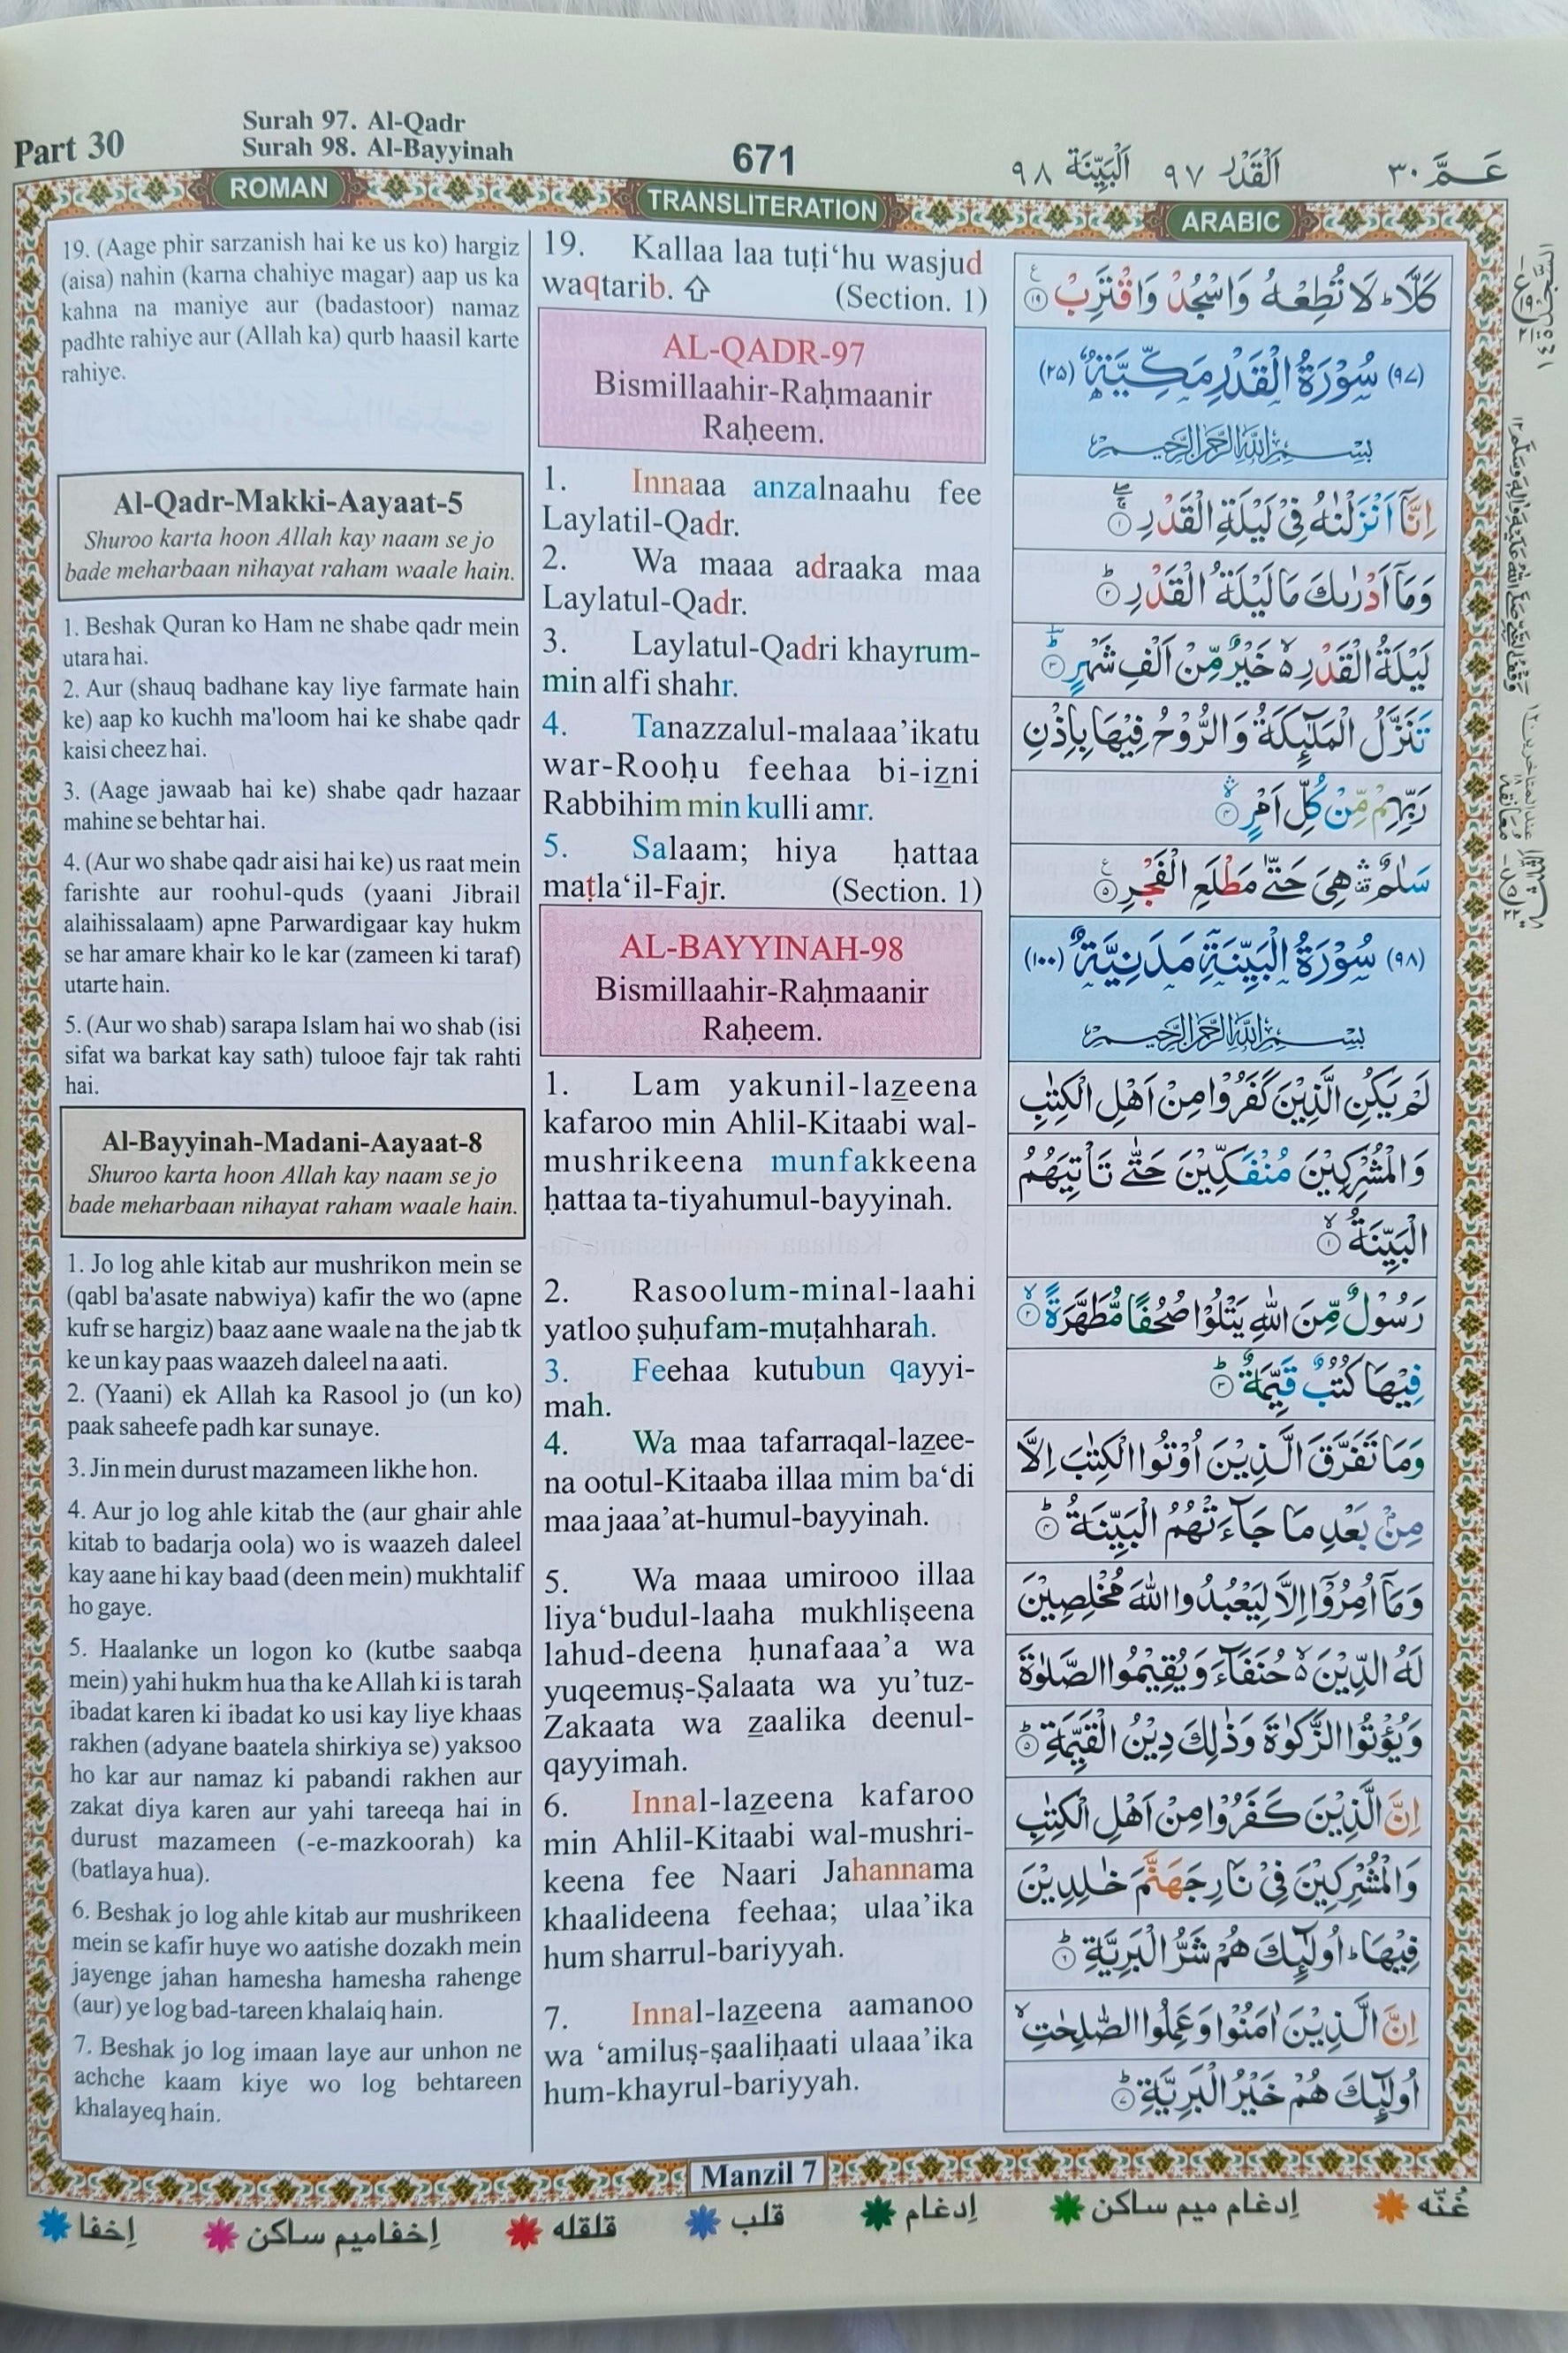 Part 30
Surah 97. Al-Qadr
Surah 98. Al-Bayyinah
671
اَلْقَدْر ٩٧ اَلْبَيِّنَة ٩٨
عَـمَّ ٣٠
ROMAN
19. (Aage phir sarzanish hai ke us ko) hargiz
(aisa) nahin (karna chahiye magar) aap us ka
kahna na maniye aur (badastoor) namaz
padhte rahiye aur (Allah ka) qurb haasil karte
rahiye.
Al-Qadr-Makki-Aayaat-5
Shuroo karta hoon Allah kay naam se jo
bade meharbaan nihayat raham waale hain.
1. Beshak Quran ko Ham ne shabe qadr mein
utara hai.
2. Aur (shauq badhane kay liye farmate hain
ke) aap ko kuchh ma'loom hai ke shabe qadr
kaisi cheez hai.
3. (Aage jawaab hai ke) shabe qadr hazaar
mahine se behtar hai.
4. (Aur wo shabe qadr aisi hai ke) us raat mein
farishte aur roohul-quds (yaani Jibrail
alaihissalaam) apne Parwardigaar kay hukm
se har amare khair ko le kar (zameen ki taraf)
utarte hain.
5. (Aur wo shab) sarapa Islam hai wo shab (isi
sifat wa barkat kay sath) tulooe fajr tak rahti
hai.
Al-Bayyinah-Madani-Aayaat-8
Shuroo karta hoon Allah kay naam se jo
bade meharbaan nihayat raham waale hain.
1. Jo log ahle kitab aur mushrikon mein se
(qabl ba'asate nabwiya) kafir the wo (apne
kufr se hargiz) baaz aane waale na the jab tk
ke un kay paas waazeh daleel na aati.
2. (Yaani) ek Allah ka Rasool jo (un ko)
paak saheefe padh kar sunaye.
3. Jin mein durust mazameen likhe hon.
4. Aur jo log ahle kitab the (aur ghair ahle
kitab to badarja oola) wo is waazeh daleel
kay aane hi kay baad (deen mein) mukhtalif
ho gaye.
5. Haalanke un logon ko (kutbe saabqa
mein) yahi hukm hua tha ke Allah ki is tarah
ibadat karen ki ibadat ko usi kay liye khaas
rakhen (adyane baatela shirkiya se) yaksoo
ho kar aur namaz ki pabandi rakhen aur
zakat diya karen aur yahi tareeqa hai in
durust mazameen (-e-mazkoorah) ka
(batlaya hua).
6. Beshak jo log ahle kitab aur mushrikeen
mein se kafir huye wo aatishe dozakh mein
jayenge jahan hamesha hamesha rahenge
(aur) ye log bad-tareen khalaiq hain.
7. Beshak jo log imaan laye aur unhon ne
achche kaam kiye wo log behtareen
khalayeq hain.
TRANSLITERATION
19. Kallaa laa tuṭi‘hu wasjud
waqtarib. ⇧ (Section. 1)
AL-QADR-97
Bismillaahir-Raḥmaanir
Raḥeem.
1. Innaaa anzalnaahu fee
Laylatil-Qadr.
2. Wa maaa adraaka maa
Laylatul-Qadr.
3. Laylatul-Qadri khayrum-
min alfi shahr.
4. Tanazzalul-malaaa’ikatu
war-Rooḥu feehaa bi-izni
Rabbihim min kulli amr.
5. Salaam; hiya ḥattaa
maṭla‘il-Fajr. (Section. 1)
AL-BAYYINAH-98
Bismillaahir-Raḥmaanir
Raḥeem.
1. Lam yakunil-lazeena
kafaroo min Ahlil-Kitaabi wal-
mushrikeena munfakkeena
ḥattaa ta-tiyahumul-bayyinah.
2. Rasoolum-minal-laahi
yatloo ṣuḥufam-muṭahharah.
3. Feehaa kutubun qayyi-
mah.
4. Wa maa tafarraqal-lazee-
na ootul-Kitaaba illaa mim ba‘di
maa jaaa’at-humul-bayyinah.
5. Wa maaa umirooo illaa
liya‘budul-laaha mukhliṣeena
lahud-deena ḥunafaaa’a wa
yuqeemuṣ-Ṣalaata wa yu’tuz-
Zakaata wa zaalika deenul-
qayyimah.
6. Innal-lazeena kafaroo
min Ahlil-Kitaabi wal-mushri-
keena fee Naari Jahannama
khaalideena feehaa; ulaa’ika
hum sharrul-bariyyah.
7. Innal-lazeena aamanoo
wa ‘amiluṣ-ṣaaliḥaati ulaaa’ika
hum-khayrul-bariyyah.
ARABIC
كَلَّا ؕ لَا تُطِعْهُ وَاسْجُدْ وَاقْتَرِبْ ۩ ﴿١٩﴾
(٩٧) سُوْرَةُ الْقَدْرِ مَكِّيَّةٌ (٢٥)
بِسْمِ اللّٰهِ الرَّحْمٰنِ الرَّحِيْمِ
اِنَّاۤ اَنْزَلْنٰهُ فِيْ لَيْلَةِ الْقَدْرِ ﴿١﴾
وَمَاۤ اَدْرٰىكَ مَا لَيْلَةُ الْقَدْرِ ؕ ﴿٢﴾
لَيْلَةُ الْقَدْرِ ۙ خَيْرٌ مِّنْ اَلْفِ شَهْرٍ ؕ ﴿٣﴾
تَنَزَّلُ الْمَلٰٓئِكَةُ وَالرُّوْحُ فِيْهَا بِاِذْنِ
رَبِّهِمْ مِّنْ كُلِّ اَمْرٍ ۙ ﴿٤﴾
سَلٰمٌ ۛ هِيَ حَتّٰى مَطْلَعِ الْفَجْرِ ﴿٥﴾
(٩٨) سُوْرَةُ الْبَيِّنَةِ مَدَنِيَّةٌ (١٠٠)
بِسْمِ اللّٰهِ الرَّحْمٰنِ الرَّحِيْمِ
لَمْ يَكُنِ الَّذِيْنَ كَفَرُوْا مِنْ اَهْلِ الْكِتٰبِ
وَالْمُشْرِكِيْنَ مُنْفَكِّيْنَ حَتّٰى تَأْتِيَهُمُ
الْبَيِّنَةُ ۙ ﴿١﴾
رَسُوْلٌ مِّنَ اللّٰهِ يَتْلُوْا صُحُفًا مُّطَهَّرَةً ۙ ﴿٢﴾
فِيْهَا كُتُبٌ قَيِّمَةٌ ؕ ﴿٣﴾
وَمَا تَفَرَّقَ الَّذِيْنَ اُوْتُوا الْكِتٰبَ اِلَّا
مِنْۢ بَعْدِ مَا جَآءَتْهُمُ الْبَيِّنَةُ ؕ ﴿٤﴾
وَمَاۤ اُمِرُوْۤا اِلَّا لِيَعْبُدُوا اللّٰهَ مُخْلِصِيْنَ
لَهُ الدِّيْنَ ۙ حُنَفَآءَ وَيُقِيْمُوا الصَّلٰوةَ
وَيُؤْتُوا الزَّكٰوةَ وَذٰلِكَ دِيْنُ الْقَيِّمَةِ ؕ ﴿٥﴾
اِنَّ الَّذِيْنَ كَفَرُوْا مِنْ اَهْلِ الْكِتٰبِ
وَالْمُشْرِكِيْنَ فِيْ نَارِ جَهَنَّمَ خٰلِدِيْنَ
فِيْهَا ؕ اُولٰٓئِكَ هُمْ شَرُّ الْبَرِيَّةِ ؕ ﴿٦﴾
اِنَّ الَّذِيْنَ اٰمَنُوْا وَعَمِلُوا الصّٰلِحٰتِ ۙ
اُولٰٓئِكَ هُمْ خَيْرُ الْبَرِيَّةِ ؕ ﴿٧﴾
Manzil 7
غُنّه
اِدغام میم ساکن
اِدغام
قلب
قلقله
اِخفامیم ساکن
اِخفا